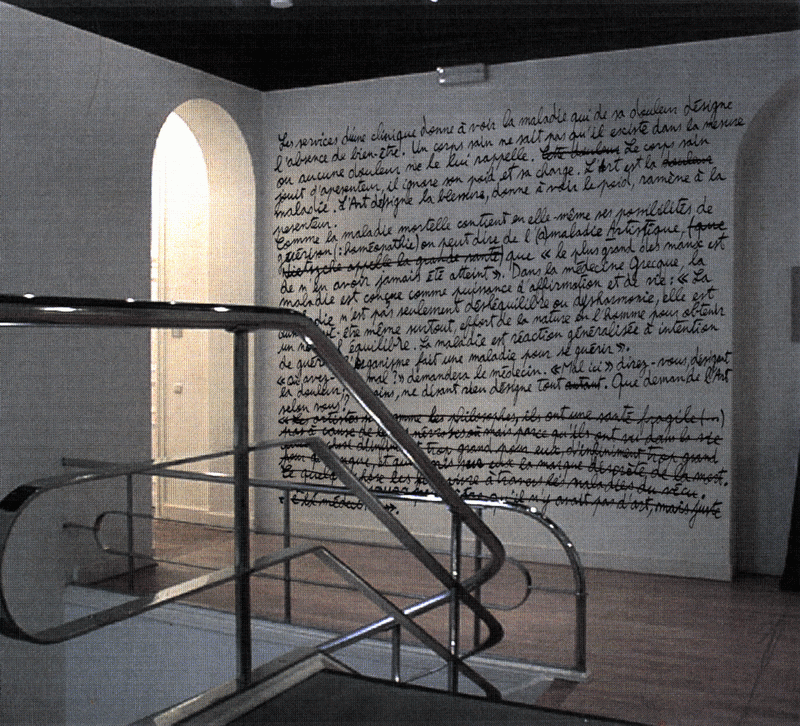 Les services d'une clinique donne à voir la maladie qui de sa douleur désigne
l'absence de bien-être. Un corps sain ne sait pas qu'il existe dans la mesure
ou aucune douleur ne le lui rappelle. Cette douleur Le corps sain
jouit d'apesenteur, il ignore son poid et sa charge. L'Art est la douleur
maladie. L'Art désigne la blessure, donne à voir le poid, ramène à la
pesenteur.
Comme la maladie mortelle contient en elle-même ses posibilités de
guérison (: homéopathie) on peut dire de l'@maladie Artistique, (que
Nietzsche appelle la grande santé) que « le plus grand des maux est
de n'en avoir jamais été atteint ». Dans la médecine Grecque, la
maladie est conçue comme puissance d'affirmation et de vie : « La
maladie n'est pas seulement déséquilibre ou désharmonie, elle est
peut-être même surtout, effort de la nature en l'homme pour obtenir
un équilibre. La maladie est réaction généralisée à intention
de guérir. L'organisme fait une maladie pour se guérir ».
mal ? » demandera le médecin. « Mal ici » direz-vous, désignant
la douleur, ne disant rien désigne tout autant. Que demande l'Art
selon vous ?
« Les artistes comme les philosophes, ils ont une santé fragile (...)
à cause de mais parce qu'ils ont vu dans la vie
trop grand pour eux, d'infiniment trop grand
pour et qui a mis sur eux la marque discrète de la mort.
vivre à travers les maladies du vécu.
il n'y avait pas d'art, mais juste